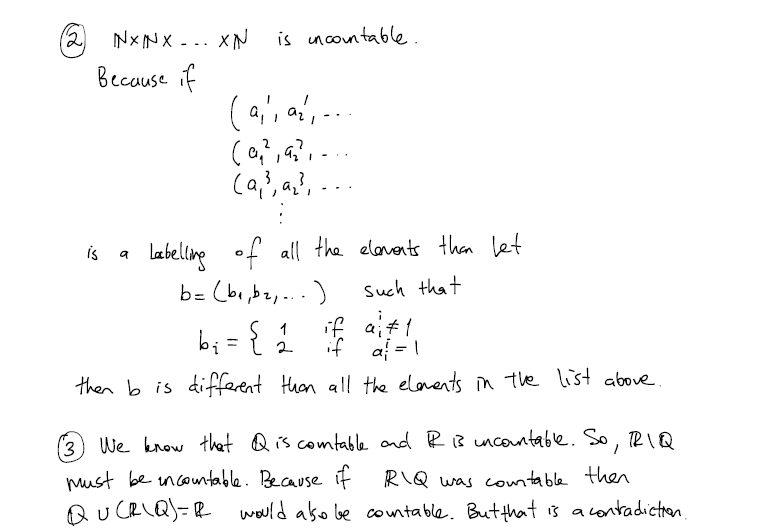 ② ℕ×ℕ× ... ×ℕ is uncountable.
Because if
(a₁¹, a₂¹, ...
(a₁², a₂², ...
(a₁³, a₂³, ...
⋮
is a labelling of all the elements then let
b = (b₁, b₂, ...) such that
bᵢ = { 1 if aᵢⁱ ≠ 1
2 if aᵢⁱ = 1
then b is different than all the elements in the list above.
③ We know that ℚ is countable and ℝ is uncountable. So, ℝ\ℚ
must be uncountable. Because if ℝ\ℚ was countable then
ℚ ∪ (ℝ\ℚ) = ℝ would also be countable. But that is a contradiction.